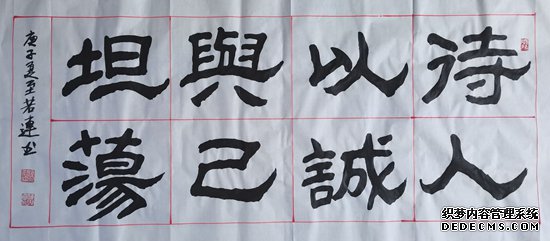 待人
以誠
與己
坦蕩
庚子夏至若連书
织梦内容管理系统
DEDECMS.COM